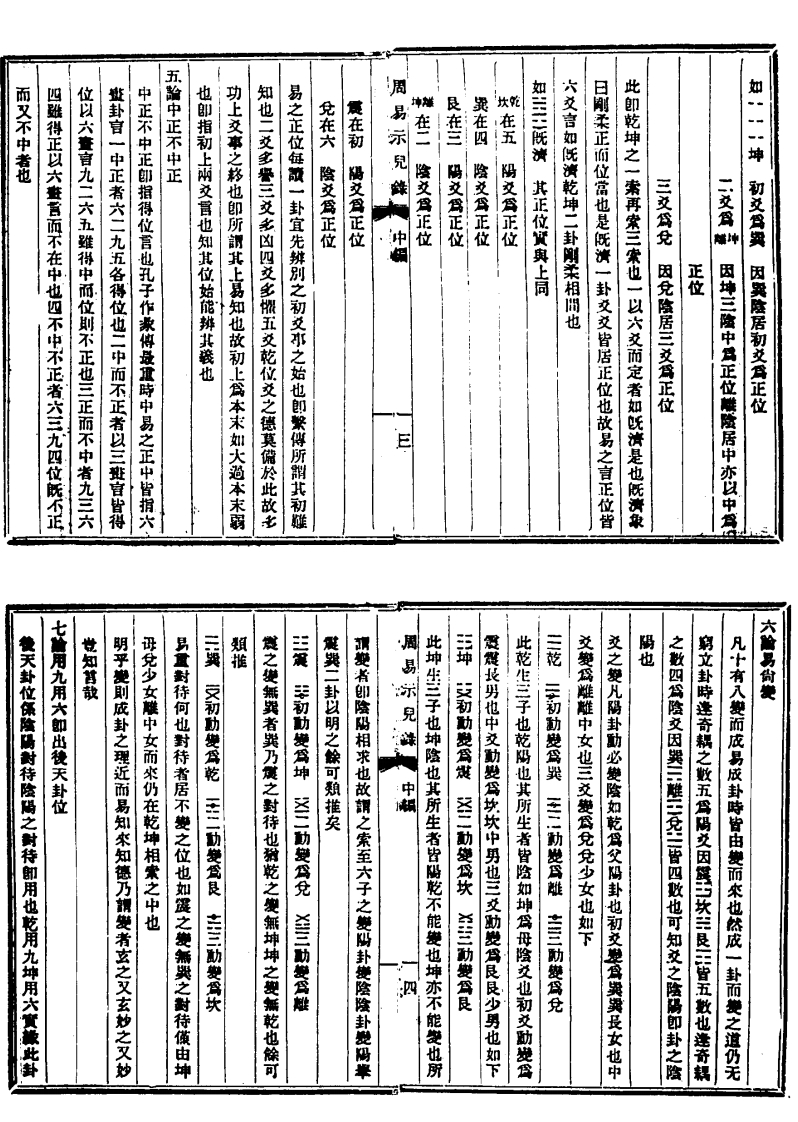 如 坤 初爻爲巽 因巽陰居初爻爲正位
二爻爲坤離 因坤三陰中爲正位離陰居中亦以中爲
正位
三爻爲兌 因兌陰居三爻爲正位
此即乾坤之一索再索三索也一以六爻而定者如旣濟是也旣濟彖
曰剛柔正而位當也是旣濟一卦爻爻皆居正位也故易之言正位皆
六爻言如旣濟乾坤二卦剛柔相間也
如☵☲旣濟 其正位實與上同
乾坎在五 陽爻爲正位
巽在四 陰爻爲正位
艮在三 陽爻爲正位
離坤在二 陰爻爲正位
周易示兒錄 中編 三
震在初 陽爻爲正位
兌在六 陰爻爲正位
易之正位每讀一卦宜先辨別之初爻事之始也卽繫傳所謂其初難
知也二爻多譽三爻多凶四爻多懼五爻乾位爻之德莫備於此故多
功上爻事之終也卽所謂其上易知也故初上爲本末如大過本末弱
也卽指初上兩爻言也知其位始能辨其義也
五論中正不中正
中正不中正卽指得位言也孔子作彖傳最重時中易之正中皆指六
畫卦言一中正者六二九五各得位也二中而不正者以三畫言皆得
位以六畫言九二六五雖得中而位則不正也三正而不中者九三六
四雖得正以六畫言而不在中也四不中不正者六三九四位旣不正
而又不中者也
六論易尙變
凡十有八變而成易成卦時皆由變而來也然成一卦而變之道仍无
窮立卦時逢奇耦之數五爲陽爻因震☳坎☵艮☶皆五數也逢奇耦
之數四爲陰爻因巽☴離☲兌☱皆四數也可知爻之陰陽卽卦之陰
陽也
爻之變凡陽卦動必變陰如乾爲父陽卦也初爻變爲巽巽長女也中
爻變爲離離中女也三爻變爲兌兌少女也如下
☰乾 初動變爲巽 二動變爲離 三動變爲兌
此乾生三子也乾陽也其所生者皆陰如坤爲母陰爻也初爻動變爲
震震長男也中爻動變爲坎坎中男也三爻動變爲艮艮少男也如下
☷坤 初動變爲震 二動變爲坎 三動變爲艮
此坤生三子也坤陰也其所生者皆陽乾不能變也坤亦不能變也所
周易示兒錄 中編 四
謂變者卽陰陽相求也故謂之索至六子之變陽卦變陰陰卦變陽舉
震巽二卦以明之餘可類推矣
☳震 初動變爲坤 二動變爲兌 三動變爲離
震之變無巽者巽乃震之對待也猶乾之變無坤坤之變無乾也餘可
類推
☴巽 初動變爲乾 二動變爲艮 三動變爲坎
易重對待何也對待者居不變之位也如震之變無巽之對待僅由坤
母兌少女離中女而來仍在乾坤相索之中也
明乎變則成卦之理近而易知來知德乃謂變者玄之又玄妙之又妙
豈知言哉
七論用九用六卽出後天卦位
後天卦位係陰陽對待陰陽之對待卽用也乾用九坤用六實緣此卦